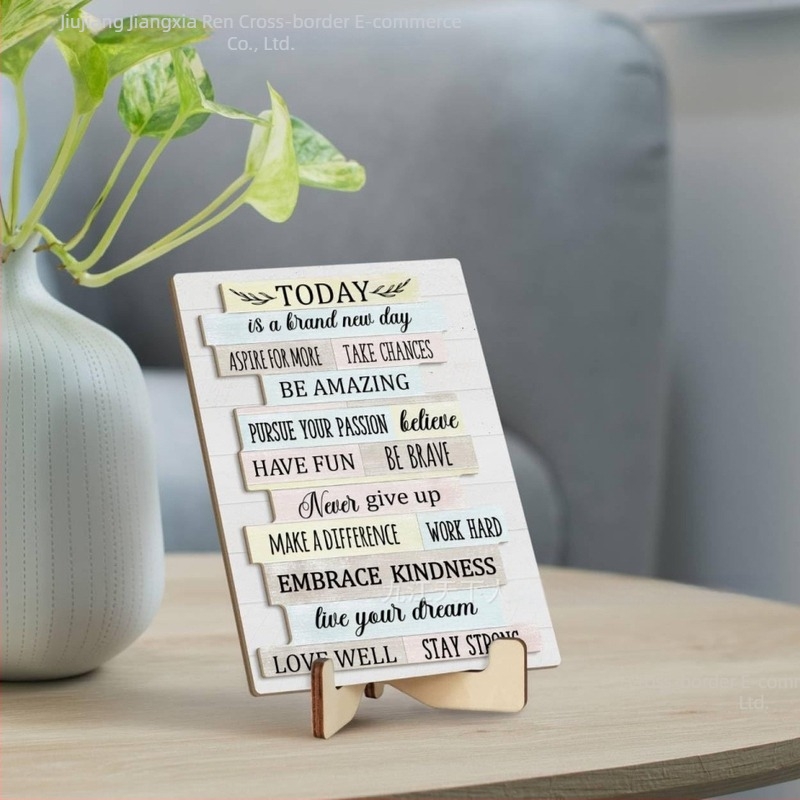 Jiujiang Jiangxia Ren Cross-border E-commerce
Co., Ltd.
TODAY
is a brand new day
ASPIRE FOR MORE TAKE CHANCES
BE AMAZING
PURSUE YOUR PASSION believe
HAVE FUN BE BRAVE
Never give up
MAKE A DIFFERENCE WORK HARD
EMBRACE KINDNESS
live your dream
LOVE WELL STAY STRONG
Ltd.